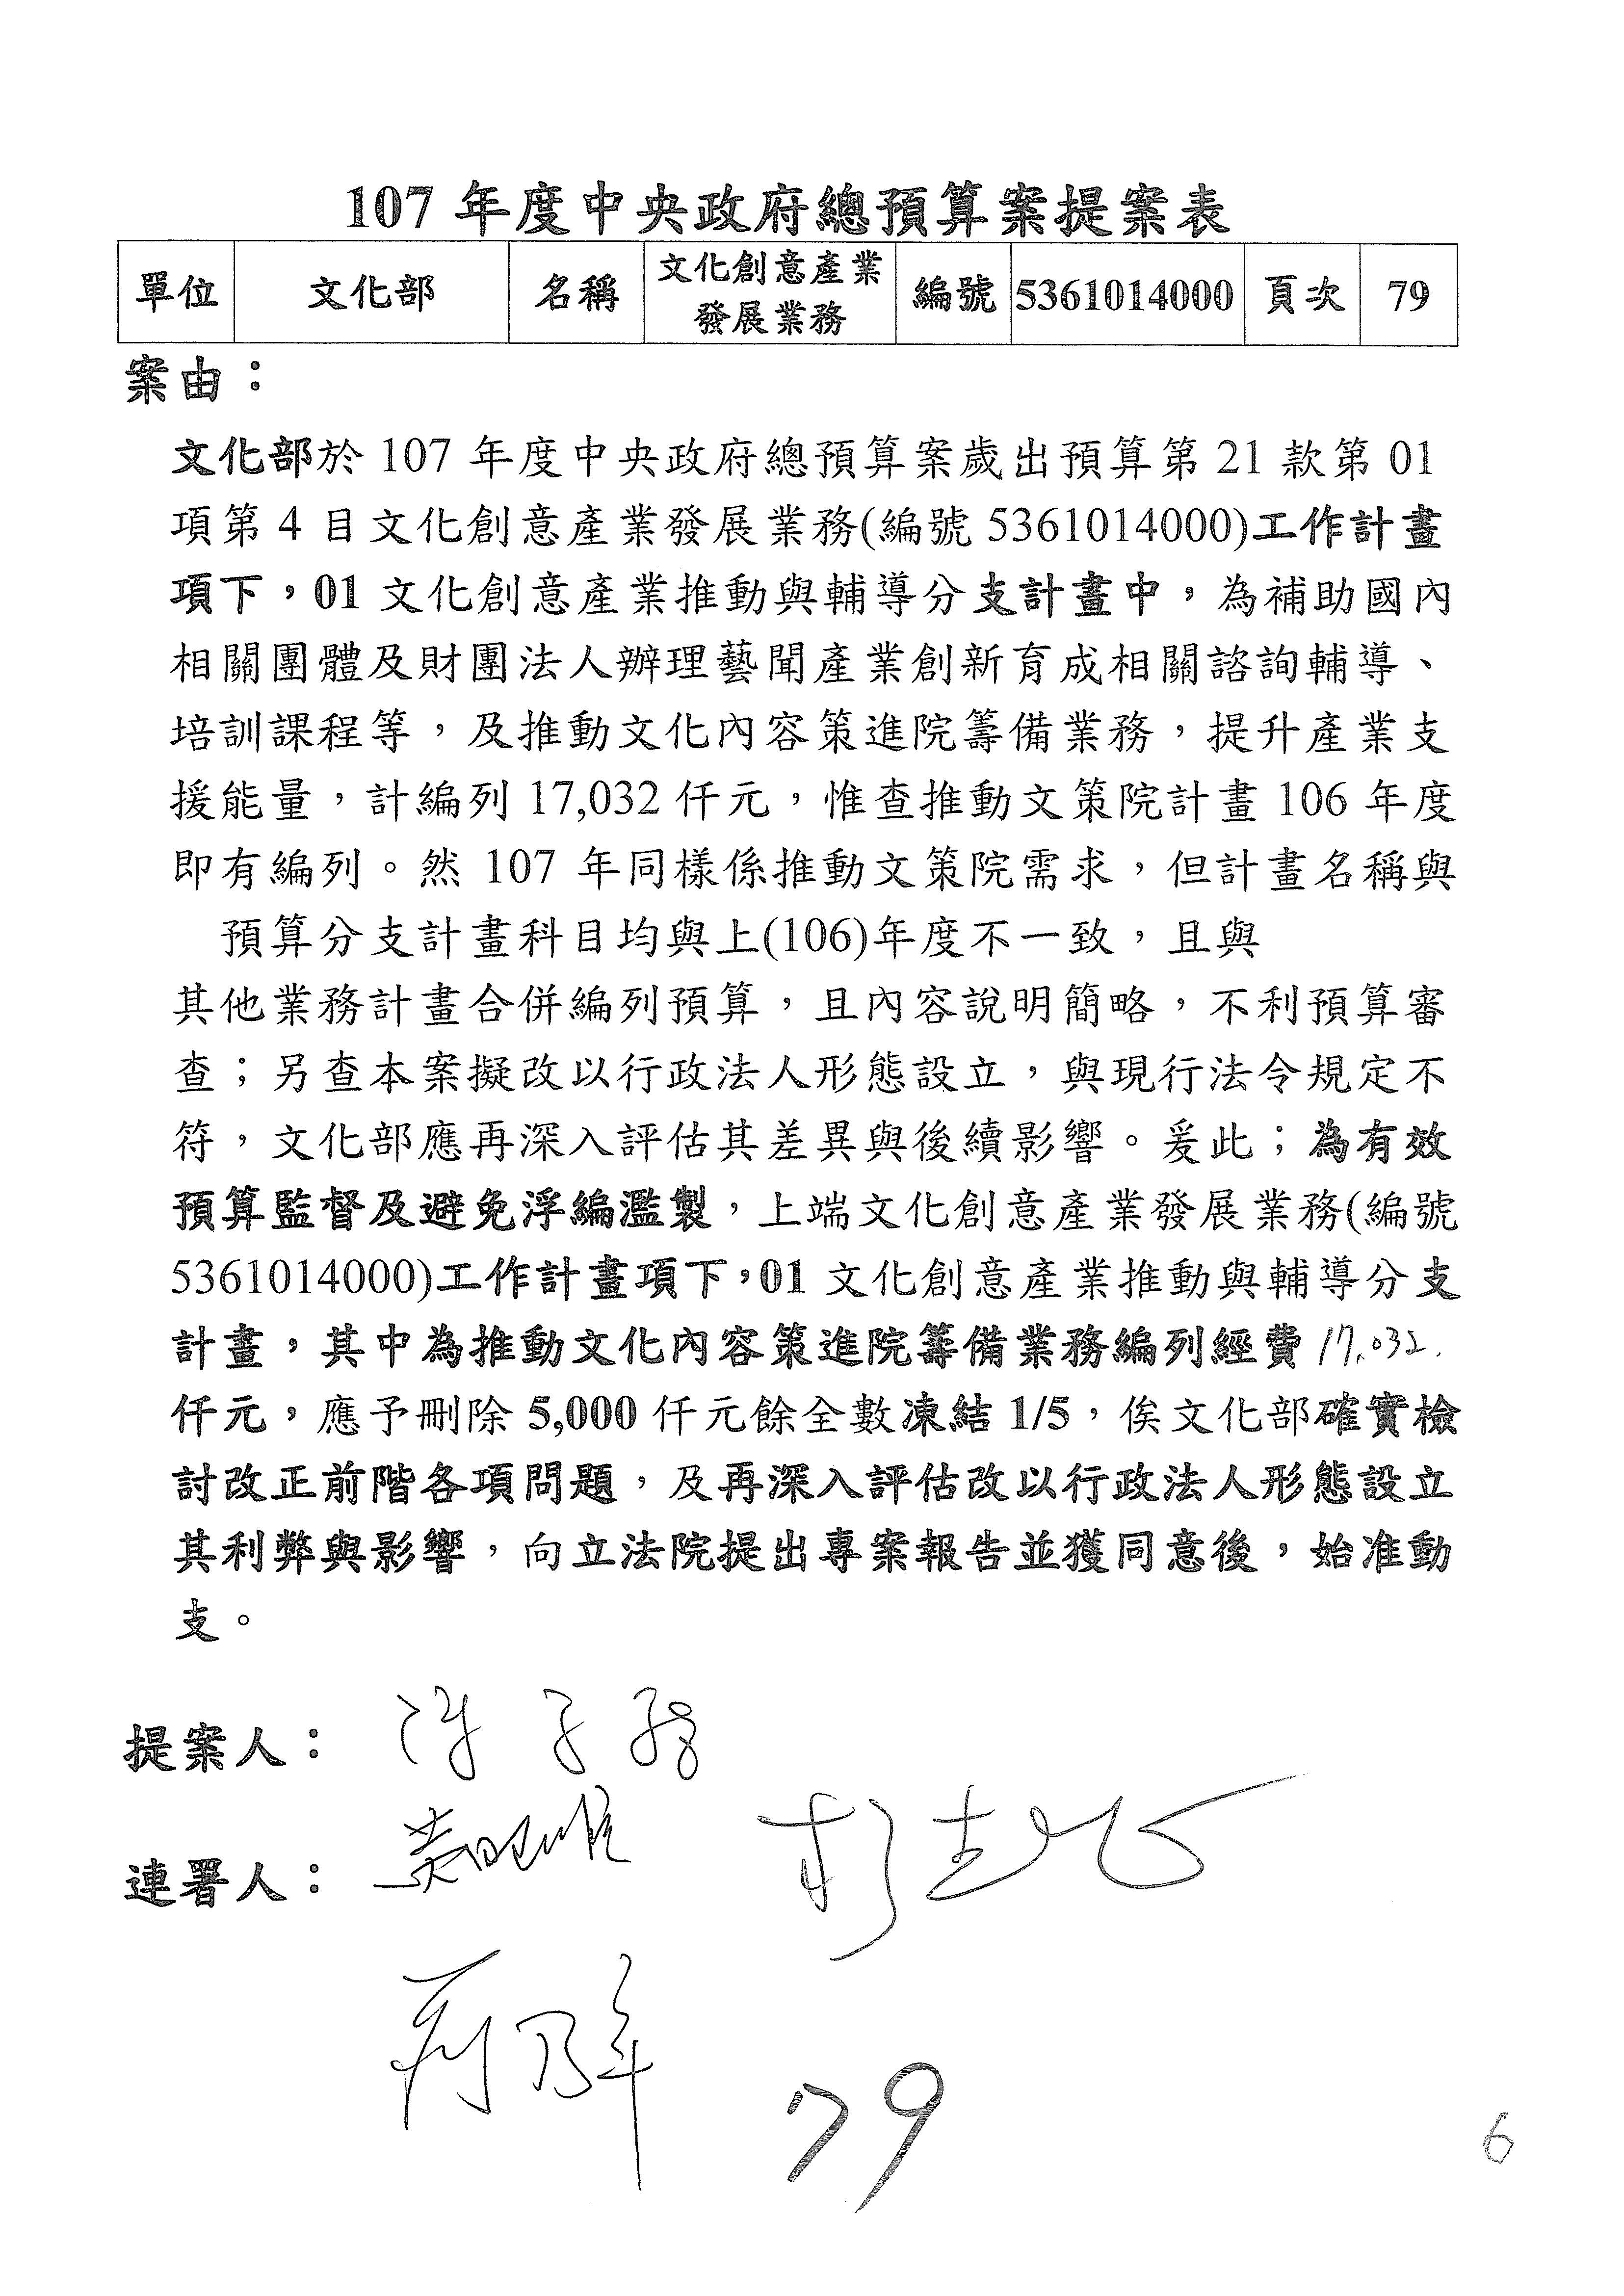 107 年度中央政府總預算案提案表
單位 文化部 名稱 文化創意產業發展業務 編號 5361014000 頁次 79
案由：
文化部於 107 年度中央政府總預算案歲出預算第 21 款第 01
項第 4 目文化創意產業發展業務(編號 5361014000)工作計畫
項下，01 文化創意產業推動與輔導分支計畫中，為補助國內
相關團體及財團法人辦理藝聞產業創新育成相關諮詢輔導、
培訓課程等，及推動文化內容策進院籌備業務，提升產業支
援能量，計編列 17,032 仟元，惟查推動文策院計畫 106 年度
即有編列。然 107 年同樣係推動文策院需求，但計畫名稱與
預算分支計畫科目均與上(106)年度不一致，且與
其他業務計畫合併編列預算，且內容說明簡略，不利預算審
查；另查本案擬改以行政法人形態設立，與現行法令規定不
符，文化部應再深入評估其差異與後續影響。爰此；為有效
預算監督及避免浮編濫製，上端文化創意產業發展業務(編號
5361014000)工作計畫項下，01 文化創意產業推動與輔導分支
計畫，其中為推動文化內容策進院籌備業務編列經費 17,032
仟元，應予刪除 5,000 仟元餘全數凍結 1/5，俟文化部確實檢
討改正前階各項問題，及再深入評估改以行政法人形態設立
其利弊與影響，向立法院提出專案報告並獲同意後，始准動
支。
提案人：
連署人：
79
6